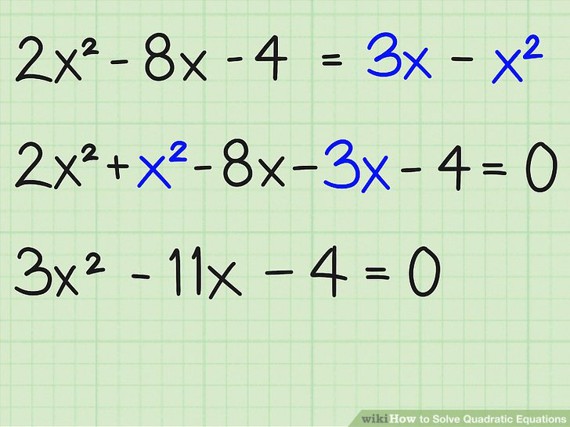 2x² - 8x - 4 = 3x - x²
2x² + x² - 8x - 3x - 4 = 0
3x² - 11x - 4 = 0
wikiHow to Solve Quadratic Equations